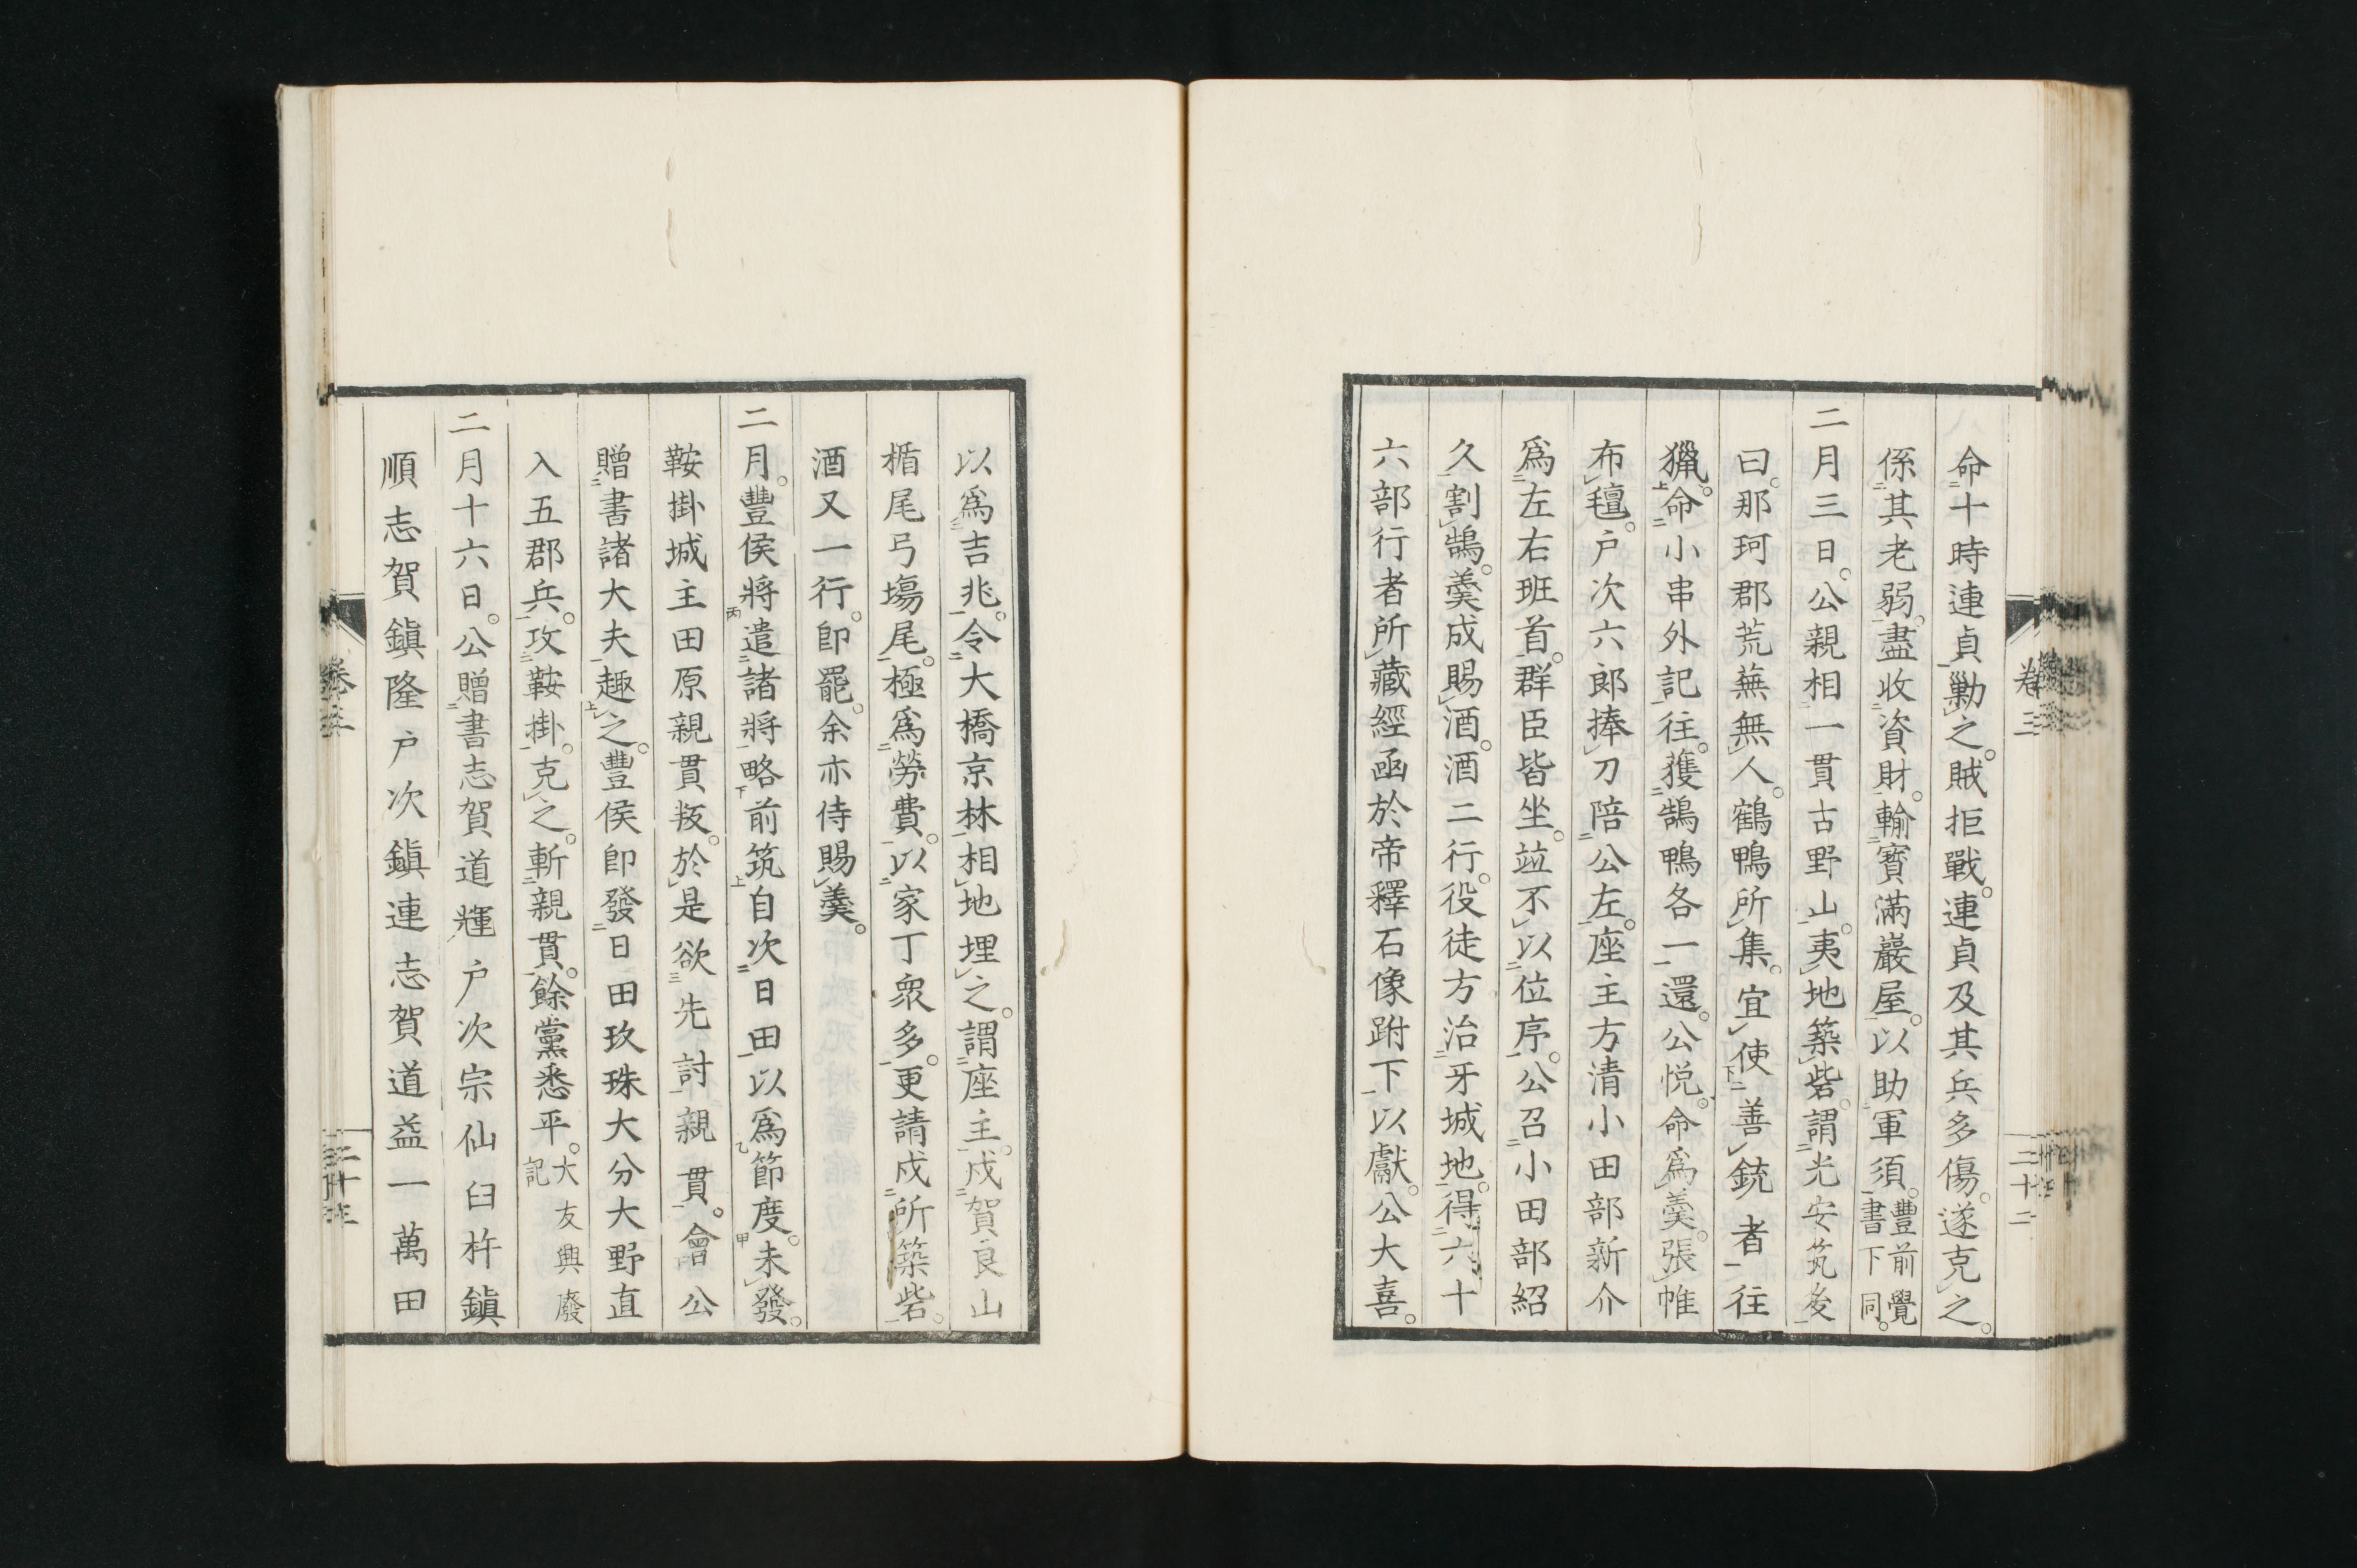 命十時連貞勦之。賊拒戰。連貞及其兵多傷。遂克之。
係其老弱。盡收資財。輸寳滿巖屋。以助軍須。豐前覺書下同。
二月三日。公親相一貫古野山。夷地築砦。謂光安筑後
曰。那珂郡荒蕪無人。鶴鴨所集。宜使善銃者往
獵。命小串外記往。獲鵠鴨各一還。公悦。命為羹。張帷
布氊。戸次六郎捧刀陪公左。座主方清小田部新介
爲左右班首。群臣皆坐。竝不以位序。公召小田部紹
久割鵠。羹成賜酒。酒二行。役徒方治牙城地。得六十
六部行者所藏經函於帝釋石像跗下以獻。公大喜。
卷三
二十二
以爲吉兆。令大橋京林相地埋之。謂座主。戍賀良山
楯尾弓塲尾。極爲勞費。以家丁衆多。更請戍所築砦。
酒又一行。卽罷。余亦侍賜羹。
二月。豐侯將遣諸將略前筑自次日田以爲節度。未發。
鞍掛城主田原親貫叛。於是欲先討親貫。會公
贈書諸大夫趣之。豐侯卽發日田玖珠大分大野直
入五郡兵。攻鞍掛。克之。斬親貫。餘黨悉平。大友興廢記
二月十六日。公贈書志賀道輝戸次宗仙臼杵鎭
順志賀鎭隆戸次鎭連志賀道益一萬田
卷三